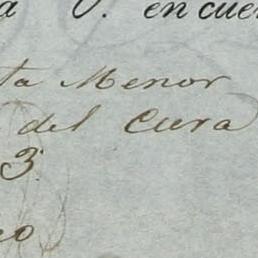 a V. en cuen
ta Menor
del Cura
3.